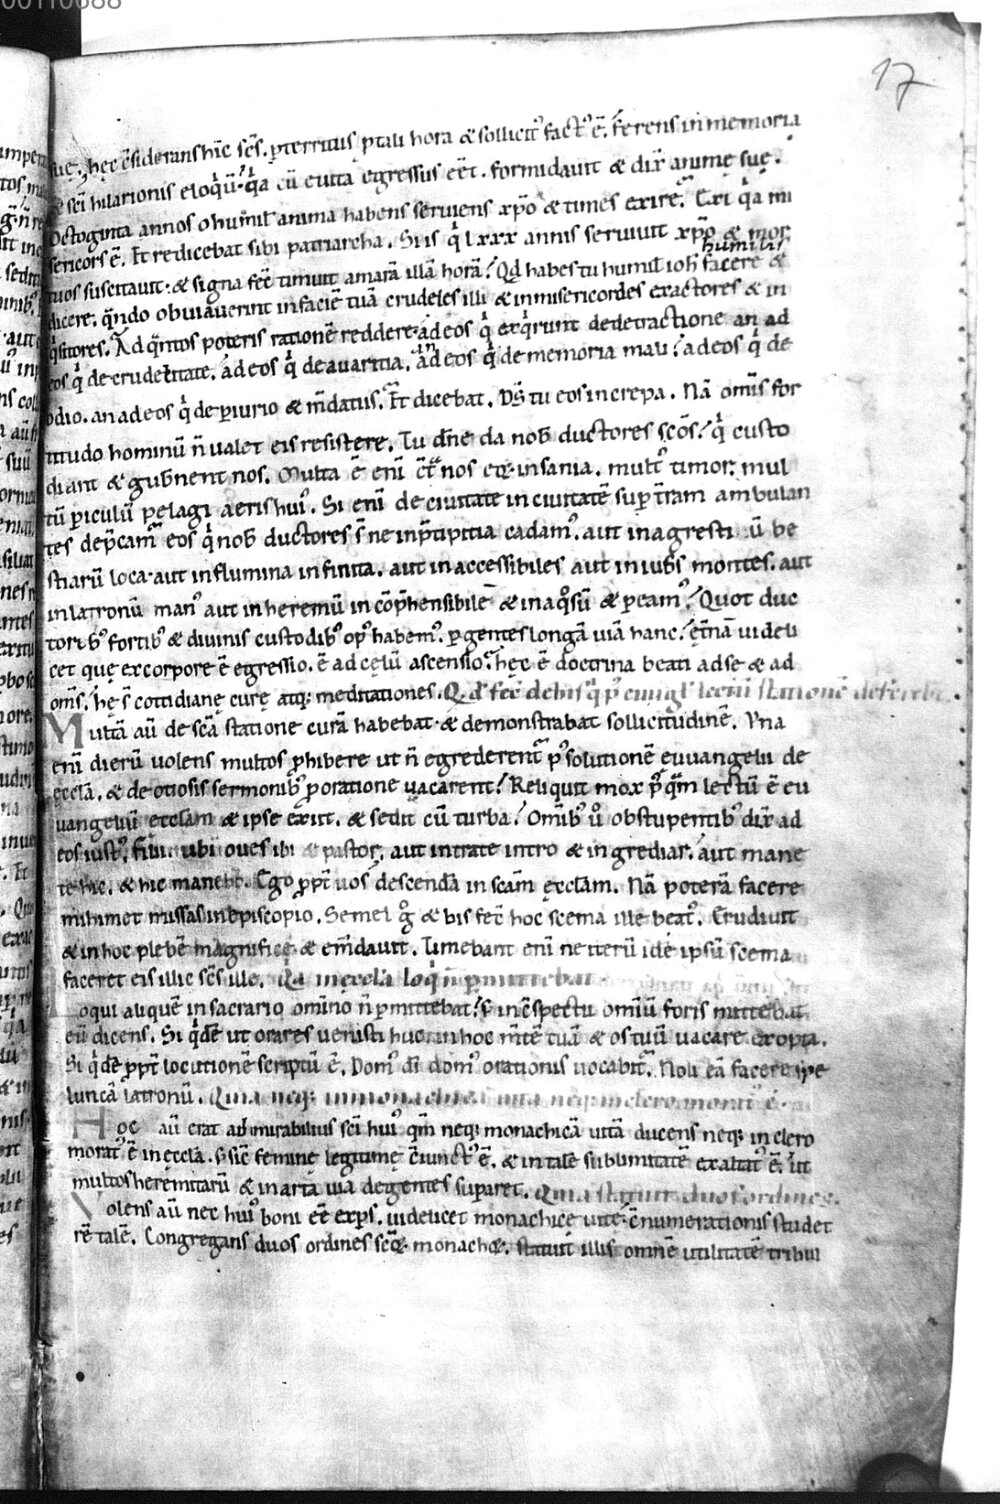 17
suę. hęc c̄siderans hīc sc̄s. ꝑterritus ꝑ tali hora & sollicitꝰ factꝰ ē. ferens in memoria
sc̄i hilarionis eloq̄ū. q̓a cū e uita egressus eēt. formidauit & dix̄ animę suę.
Octoginta annos o humil̄ anima habens seruiens xp̄o & times exire. Exi q̓a mi
sericors ē. Et redicebat sibi patriarcha. Si is q̓ lxxx annis seruiuit xp̄o & mor
tuos suscitauit. & signa fec̄ timuit amarā illā horā? Qd̄ habes tu humil̄ ioh̄ facere &
humilis
dicere. qn̄do obuiauerint in faciē tuā crudeles illi & inmisericordes exactores & in
q̓sitores. Ad q̄ntos poteris rationē reddere. ad eos q̓ exq̓runt de detractione an ad
eos q̓ de crudelitate. ad eos q̓ de auaritia. an ad eos q̓ de memoria mali? ad eos q̓ de
odio. an ad eos q̓ de ꝑiurio & m̄datus. Et dicebat. DS̄ tu eos increpa. Nā omīs for
titudo hominū n̄ ualet eis resistere. Tu dn̄e da nob̄ ductores sc̄os? q̓ custo
diant & gub̄nent nos. Multa ē enī c̄t̄ nos eoꝝ insania. multꝰ timor. mul
tū ꝑiculū pelagi aeris huiꝰ. Si enī de ciuitate in ciuitatē sup t̄ram ambulan
tes dep̄camr̄ eos q̓ nob̄ ductores s̄ ne in p̄cipitia cadamꝰ. aut in agresti ū be
stiarū loca. aut in flumina infinita. aut in accessibiles aut in iub̄s montes. aut
in latronū manꝰ aut in heremū incōp̄hensibilē & inaq̓sū & peamꝰ? Quot duc
toribꝰ fortibꝰ & diuinis custodibꝰ opꝰ habemꝰ. ꝑgentes longā uiā hanc. & et̄nā uideli
cet quę ex corpore ē egressio. ē ad cęlū ascensio. hęc ē doctrina beati ad se & ad
oms̄. hę s̄ cottidianę curę atq; meditationes. Qd̄ fec̄ de his q̓ pꝰ euug̃l lectū statione
Multā aū de sc̄a statione curā habebat. & demonstrabat sollicitudinē. Vna
enī dierū uolens multos ꝓhibere ut n̄ egrederentr̄ pꝰ solutionē euuangelii de
eccl̄a. & de otiosis sermonibꝰ ꝓ oratione uacarent? Reliquit mox pꝰ q̄m lectū ē eu
uangeliū eccl̄am & ipse exiit. & sedit cū turba? Omībꝰ ū obstupentibꝰ dix̄ ad
eos iustꝰ. filii ubi oues ibi & pastor. aut intrate intro & ingrediar. aut mane
te hic. & hic manebo. Ego ꝓpt̄ uos descenda in sc̄am eccl̄am. Nā poterā facere
mihimet missas in episcopio. Semel g̊ & bis fec̄ hoc scema ille beatꝰ. Erudiuit
& in hoc plebē magnificę & em̄dauit. Timebant enī ne iterū idē ipsū scema
faceret eis illic sc̄s ille. Qd̄ in eccl̄a loq̓ n̄ ꝑmittebat
Loqui aliquē in sacrario omīno n̄ ꝑmittebat? s; in c̄spectu omiū foris mittebat
eū dicens. Si q̓dē ut orares uenisti huc. in hoc m̄tē tuā & os tuū uacare exopta.
Si q̓dē ꝓpt̄ locutionē scriptū ē. Domꝰ dī domꝰ orationis uocabitr̄. Noli eā facere spe
luncā latronū. Quia neq; in monachica uita neq; in clero moratꝰ ē.
Hoc aū erat admirabilius sc̄i huiꝰ qm̄ neq; monachicā uitā ducens neq; in clero
moratꝰ ē in eccl̄a. s; sic̄ femine legitimę c̄iunctꝰ ē. & in talē sublimitatē exaltatꝰ ē. ut
multos heremitarū & in arta uia degentes superaret. Quia statuit duos ordines.
Volens aū nec huiꝰ boni eē exp̄s. uidelicet monachice uitę. c̄numerationis studet
rē talē. Congregans duos ordines sc̄oꝝ monachoꝝ. statuit illis omnē utilitatē tribui